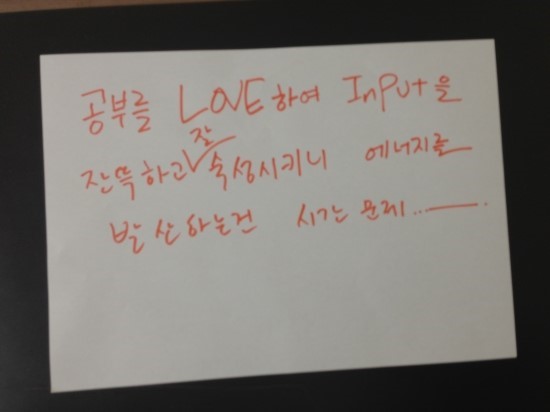 공부를 LOVE하여 InPut을
잔뜩하고 잘 숙성시키니 에너지를
발산하는건 시간문제..——.